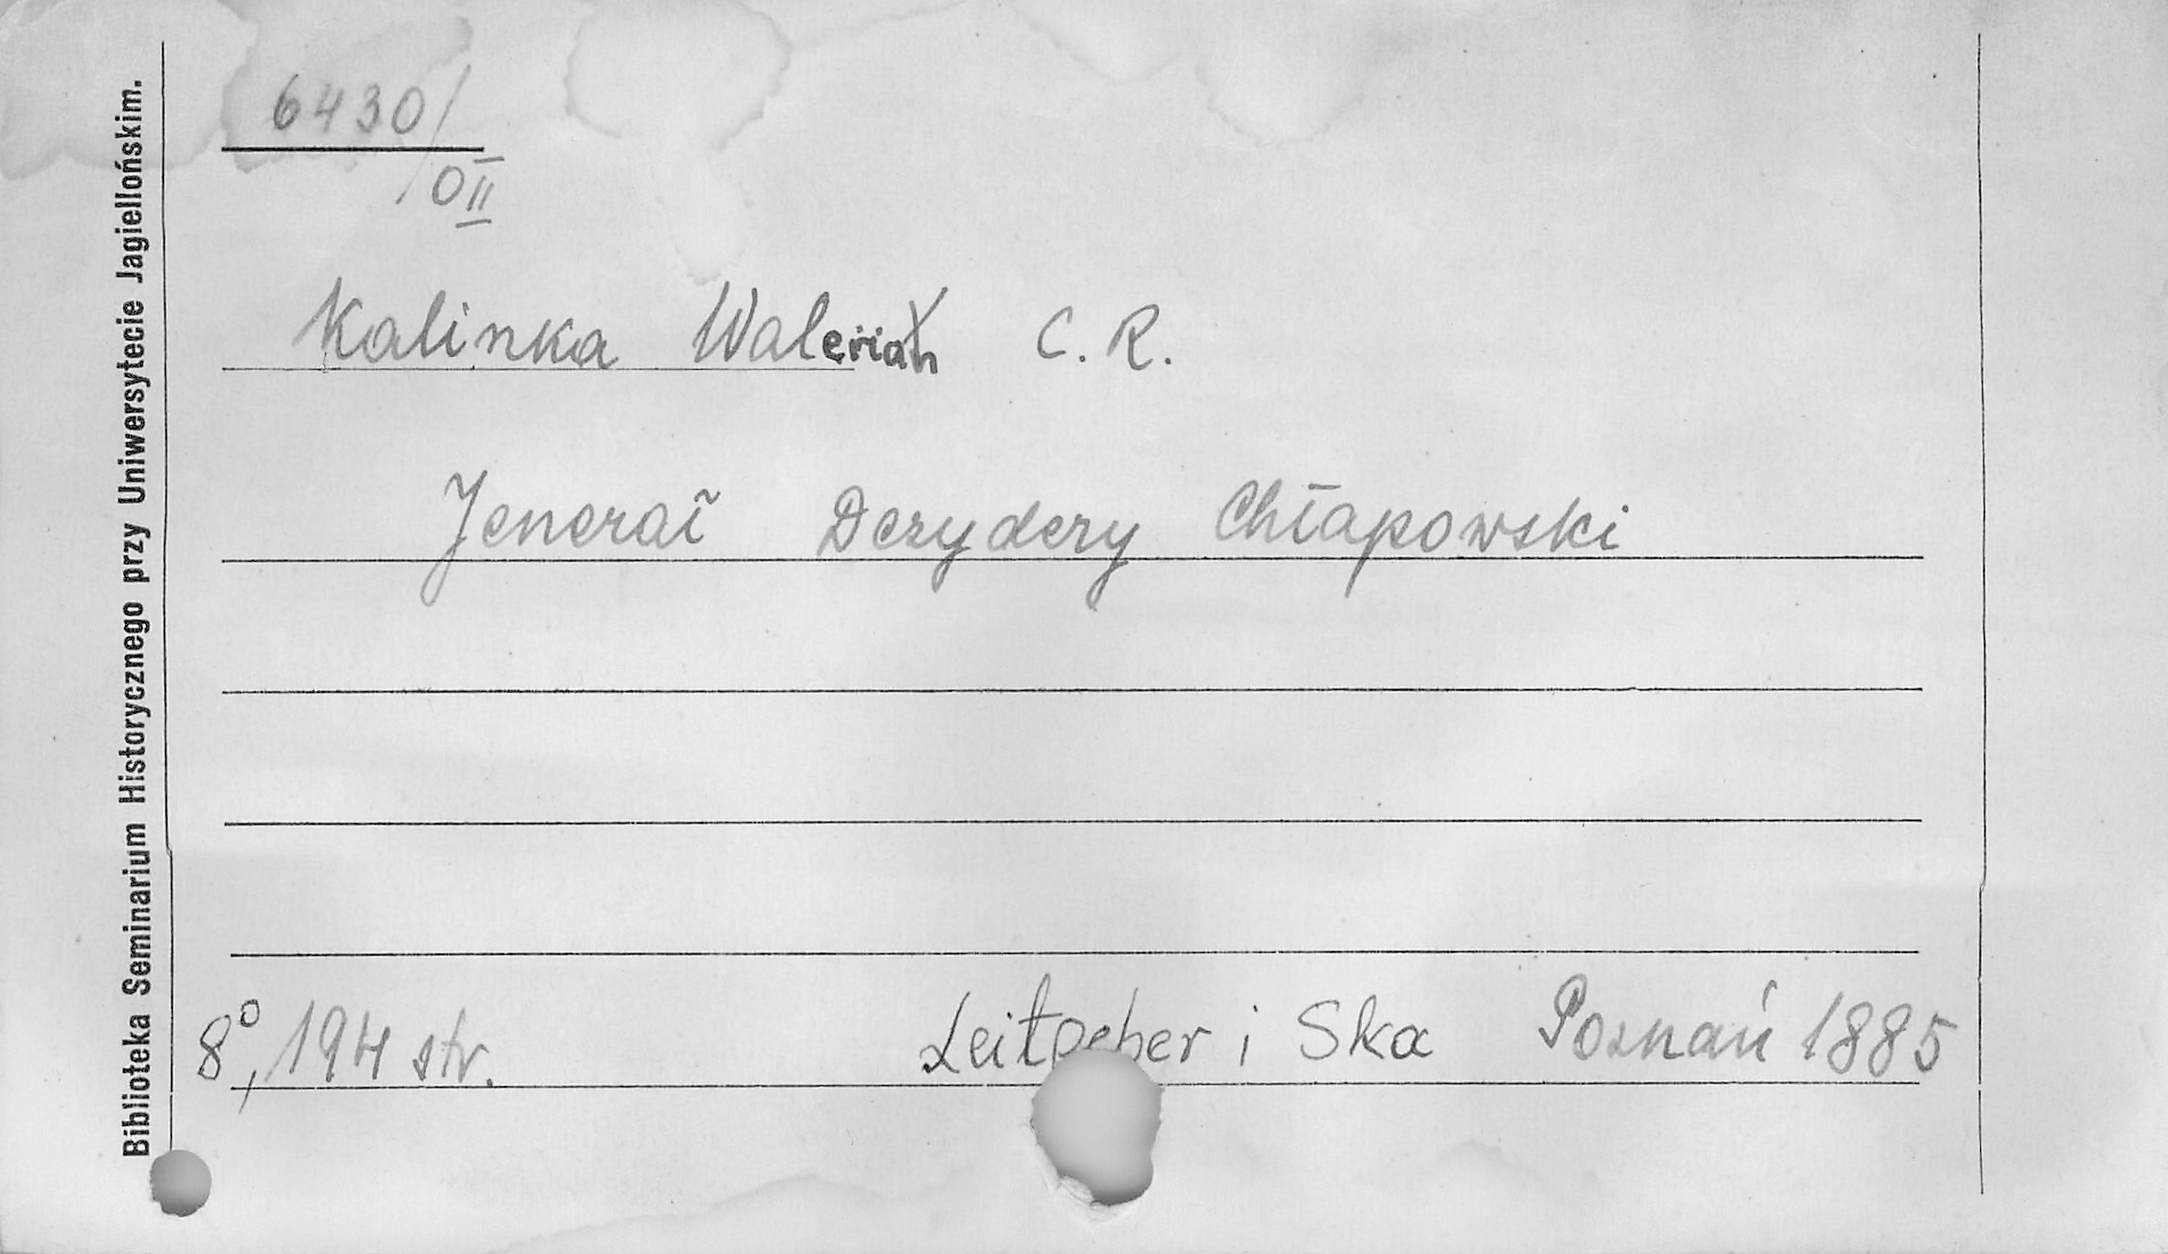 Biblioteka Seminarium Historycznego przy Uniwersytecie Jagiellońskim.
6430/
OII
Kalinka Walerian C. R.
Jenerał Dezydery Chłapowski
8°, 194 str. Leitgeber i Ska Poznań 1885